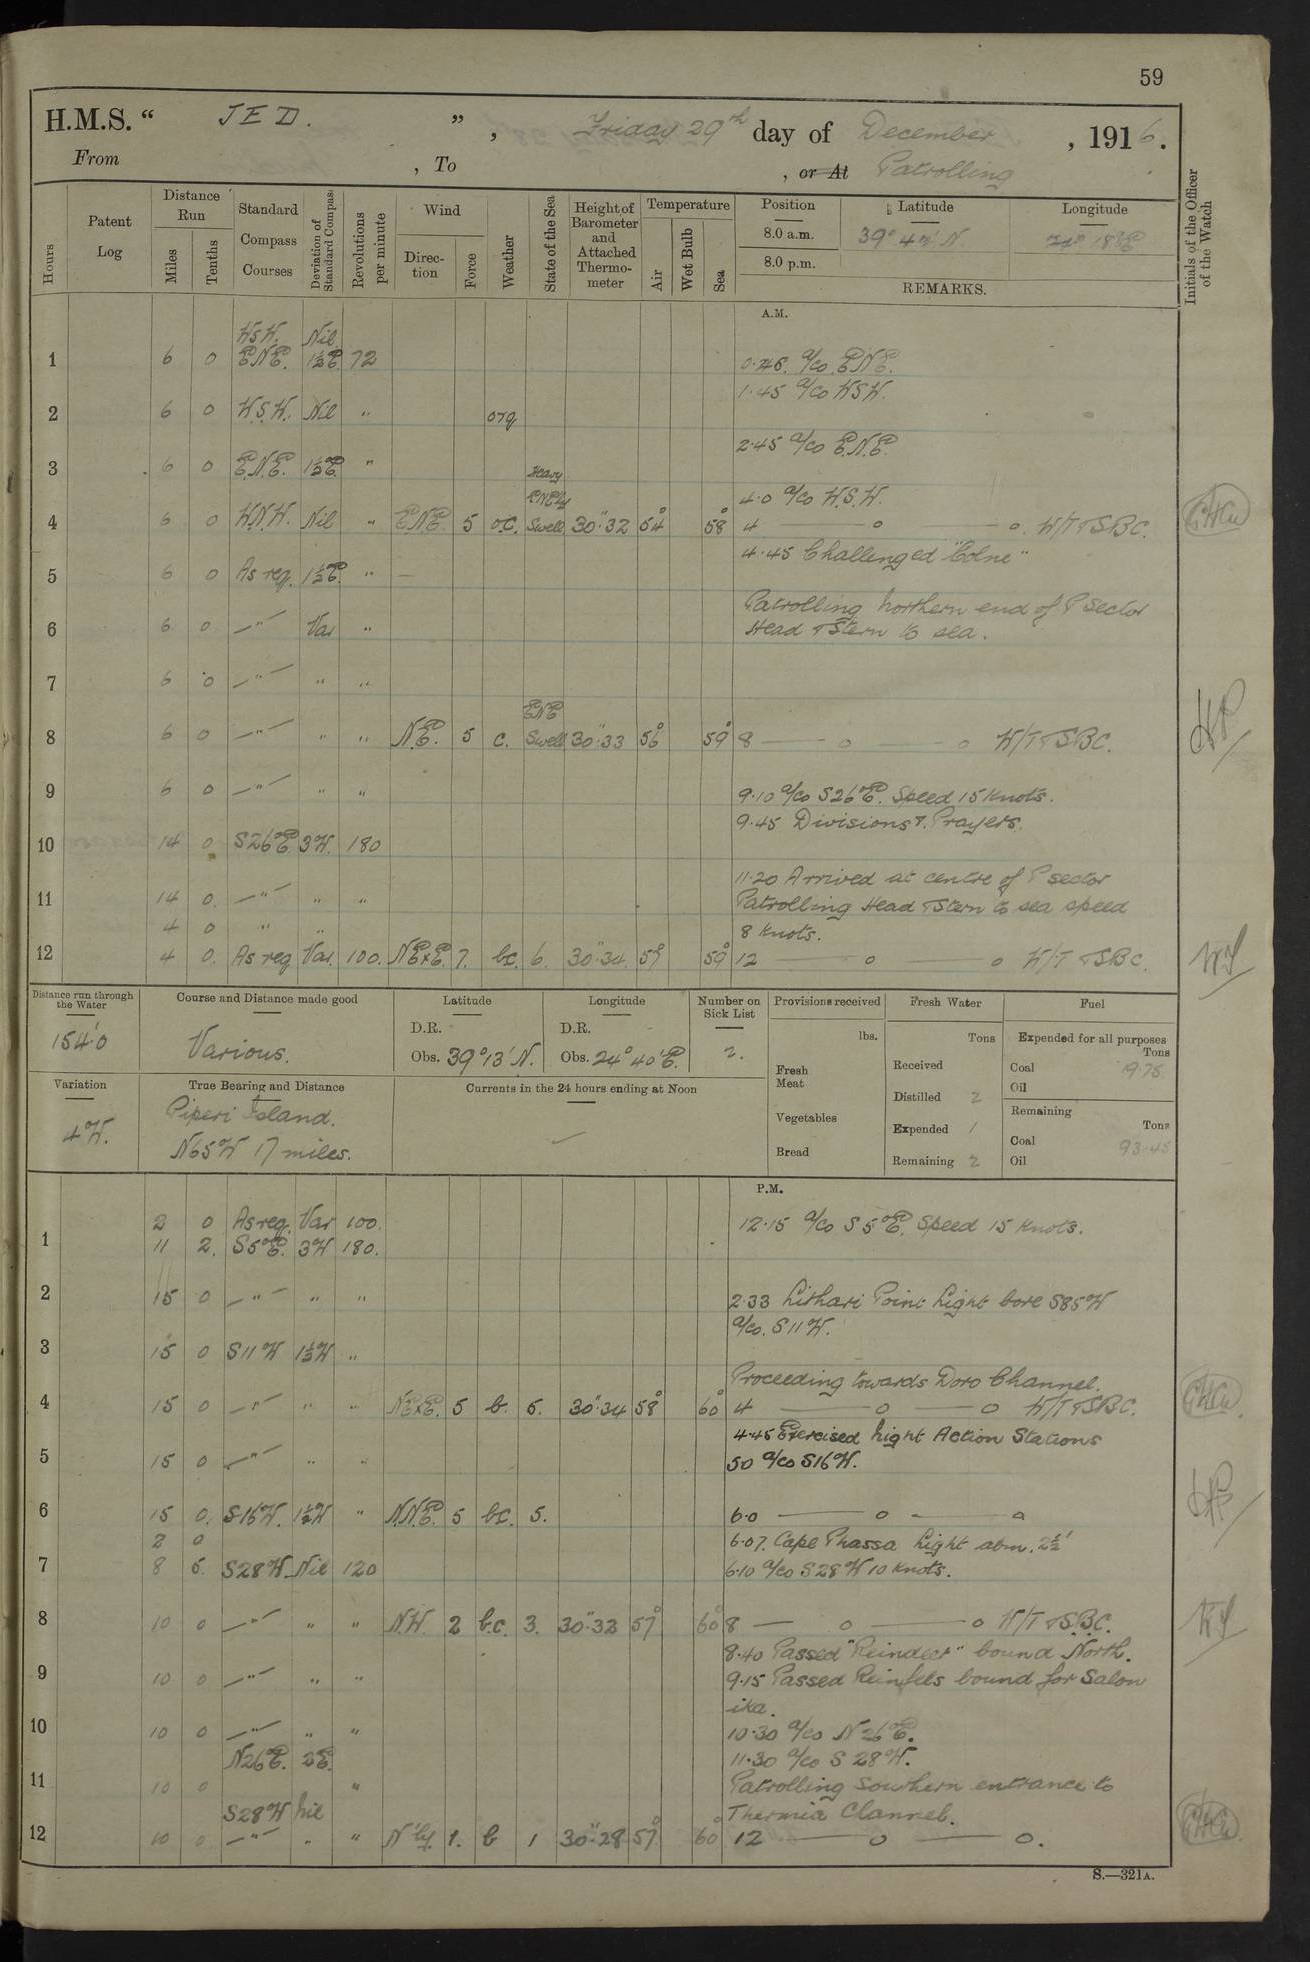 59
H.M.S. " JED. ", Friday 29th day of December, 1916.
From , To , or At Patrolling
Hours
Patent Log
Distance Run
Miles
Tenths
Standard Compass Courses
Deviation of Standard Compass
Revolutions per minute
Wind
Direction
Force
Weather
State of the Sea
Height of Barometer and Attached Thermometer
Temperature
Air
Wet Bulb
Sea
Position Latitude Longitude
8.0 a.m. 39° 42' N.
8.0 p.m.
REMARKS.
Initials of the Officer of the Watch
A.M.
W.S.W. Nil
1 6 0 E.N.E. 1½E 72 0.46. a/co. E.N.E.
1.45 a/co W.S.W.
2 6 0 W.S.W. Nil " org
2.45 a/co E.N.E.
3 6 0 E.N.E. 1½E "
Heavy ENEly Swell
4.0 a/co W.S.W.
4 6 0 W.N.W. Nil " ENE. 5 o.c. 30".32 54° 58° 4 — o — o. W/T & SBC.
4.45 Challenged "Colne"
5 6 0 As req. 1½E. " —
Patrolling northern end of P Sector
6 6 0 —"— Var " Head & Stern to sea.
7 6 0 —"— " "
ENE
8 6 0 —"— " " N.E. 5 c. Swell 30".33 56° 59° 8 — o — o W/T & SBC.
9 6 0 —"— " " 9.10 a/co S26°E. Speed 15 knots.
9.45 Divisions & Prayers.
10 14 0 S26°E 3W. 180
11.20 Arrived at centre of P sector
11 14 0. —"— " " Patrolling Head & Stern to sea speed
4 0 " " 8 knots.
12 4 0. As req Var. 100. NExE. 7. bc. 6. 30".34 59° 12 — o — o W/T & SBC.
Distance run through the Water
154'.0
Course and Distance made good
Various.
Latitude
D.R.
Obs. 39° 13' N.
Longitude
D.R.
Obs. 24° 40' E.
Number on Sick List
2.
Provisions received
lbs.
Fresh Meat
Vegetables
Bread
Fresh Water
Tons
Received
Distilled 2
Expended 1
Remaining 2
Fuel
Expended for all purposes
Tons
Coal 19.75
Oil
Remaining
Tons
Coal 93.45
Oil
Variation
4°W.
True Bearing and Distance
Piperi Island.
N65°W 17 miles.
Currents in the 24 hours ending at Noon
P.M.
2 0 As req. Var 100. 12.15 a/co S5°E. Speed 15 knots.
1 11 2. S5°E. 3W 180.
2 15 0 —"— " " 2.33 Lithari Point Light bore S85°W
a/co. S11°W.
3 15 0 S11°W 1½W "
Proceeding towards Doro Channel.
4 15 0 —"— " " NExE. 5 b. 5. 30".34 58° 60° 4 — o — o W/T & SBC.
4.45 Exercised Night Action Stations
5 15 0 —"— " " 5.0 a/co S16°W.
6 15 0. S16°W. 1½W " N.N.E. 5 b.c. 5. 6.0 — o — o
2 0 6.07. Cape Phassa Light abm. 2½'
7 8 5. S28°W. Nil 120 6.10 a/co S28°W 10 knots.
8 10 0 —"— " " N.W. 2 b.c. 3. 30".33 57° 60° 8 — o — o W/T & S.B.C.
8.40 Passed "Reindeer" bound North.
9 10 0 —"— " " 9.15 Passed Reinfels bound for Salon
ika.
10 10 0 —"— " " 10.30 a/co N26°E.
N26°E. 2E. 11.30 a/co S28°W.
11 10 0 " Patrolling southern entrance to
S28°W Nil Thermia Channel.
12 10 0 —"— " " N'ly. 1. b 1 30".28 57° 60° 12 — o — o.
S.—321A.